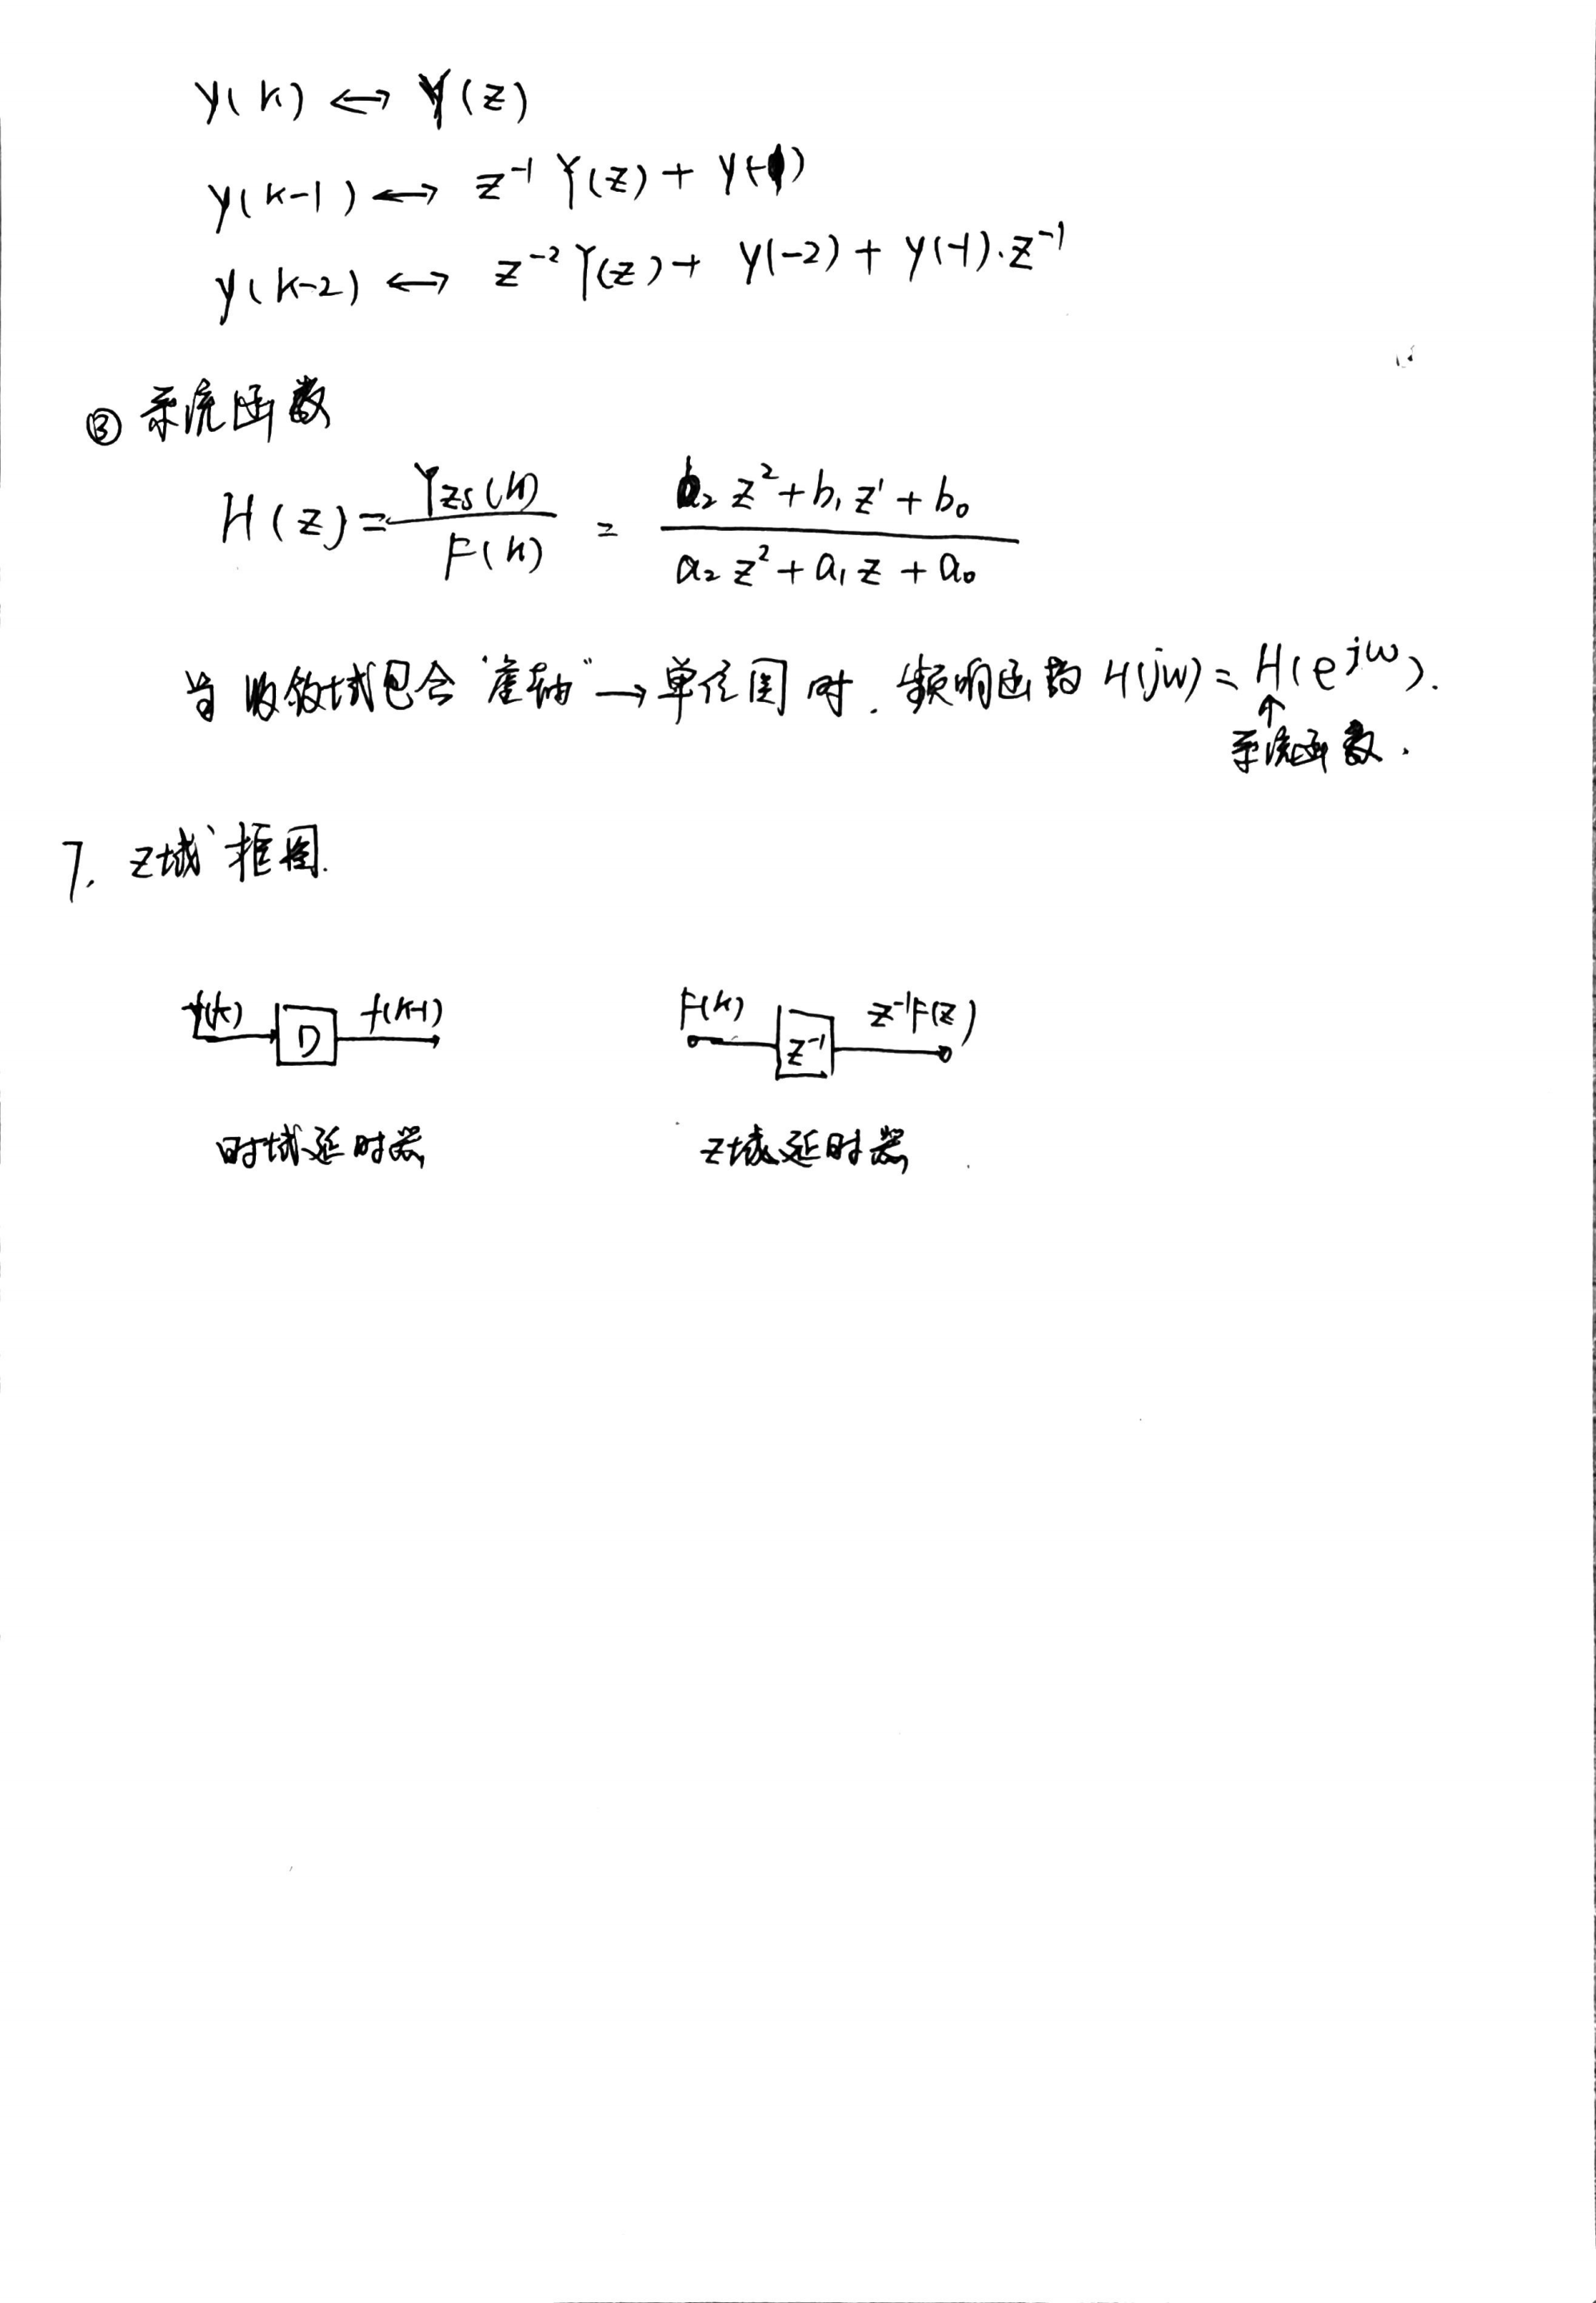 y(k) ↔ Y(z)
y(k-1) ↔ z⁻¹ Y(z) + y(-1)
y(k-2) ↔ z⁻² Y(z) + y(-2) + y(-1)·z⁻¹
③ 系统函数
H(z) = Yzs(k) / F(k) = (b₂z² + b₁z¹ + b₀) / (a₂z² + a₁z + a₀)
当收敛域包含"虚轴"→单位圆时. 频响函数 H(jω) = H(e^jω).
↑
系统函数.
7. z域框图.
f(k) D f(k-1) F(k) z⁻¹ z⁻¹F(z)
时域延时器 z域延时器